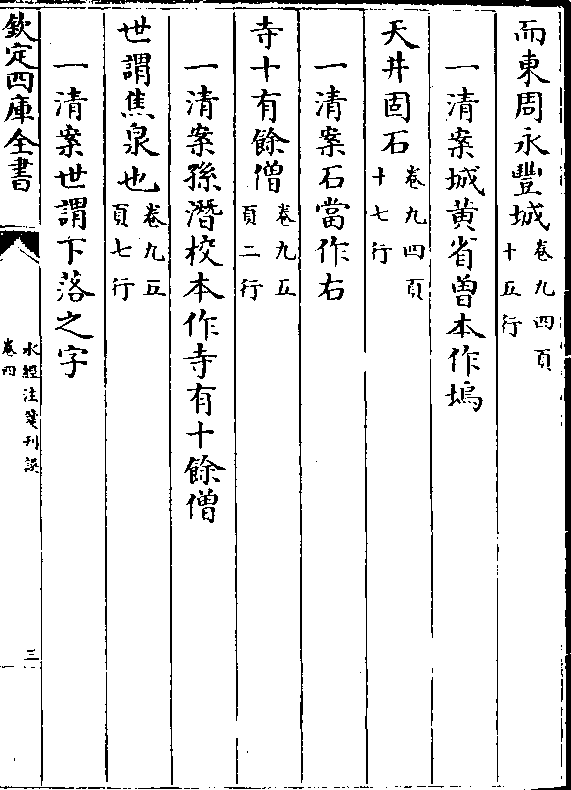 而東周永豐城卷九四頁十五行
一清案城黄省曾本作塢
天井固石卷九四頁十七行
一清案石當作右
寺十有餘僧卷九五頁二行
一清案孫潛校本作寺有十餘僧
世謂焦泉也卷九五頁七行
一清案世謂下落之字
欽定四庫全書
水經注箋刋誤
卷四
三